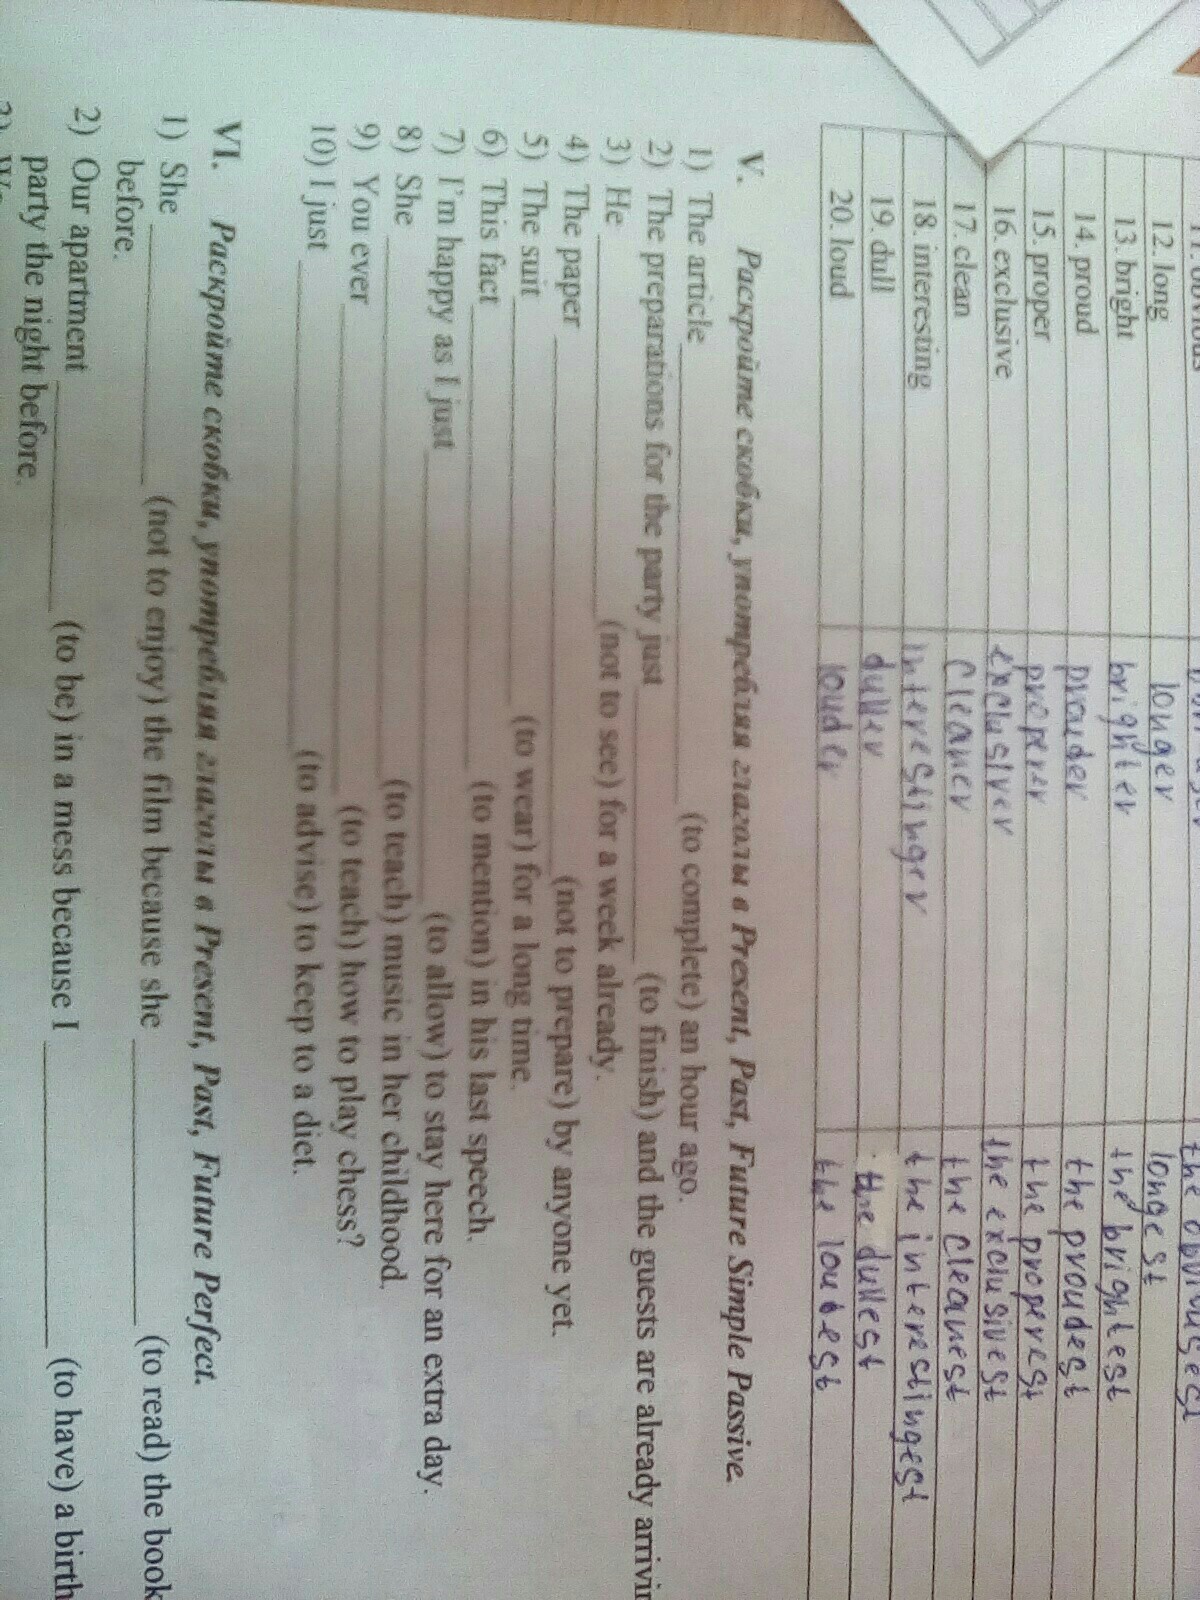 12. long longer longest
13. bright brighter the brightest
14. proud prouder the proudest
15. proper properer the properest
16. exclusive exclusiver the exclusivest
17. clean cleaner the cleanest
18. interesting interestinger the interestingest
19. dull duller the dullest
20. loud louder the loudest
V. Раскройте скобки, употребляя глаголы в Present, Past, Future Simple Passive.
1) The article ____ (to complete) an hour ago.
2) The preparations for the party just ____ (to finish) and the guests are already
3) He ____ (not to see) for a week already.
4) The paper ____ (not to prepare) by anyone yet.
5) The suit ____ (to wear) for a long time.
6) This fact ____ (to mention) in his last speech.
7) I'm happy as I just ____ (to allow) to stay here for an extra day.
8) She ____ (to teach) music in her childhood.
9) You ever ____ (to teach) how to play chess?
10) I just ____ (to advise) to keep to a diet.
VI. Раскройте скобки, употребляя глаголы в Present, Past, Future Perfect.
1) She ____ (not to enjoy) the film because she ____ (to read) the book
before.
2) Our apartment ____ (to be) in a mess because I ____ (to have) a birth
party the night before.